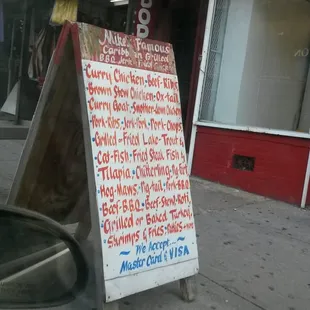 Mike's Famous
Caribb on Grilled
B.B.Q. Jerk
Curry Chicken • Beef-Ribs
Brown Stew Chicken • Ox-tail
Curry Goat • Smother-Down Chicken
Pork-Ribs • Jerk-Pork • Pork-Chops
Grilled • Fried Lake-Trout
Cat-Fish • Fried Steak Fish
Tilapia •
Hog-Maws • Pig-tail • Pork-
Beef-B.B.Q. • Beef-Stew
Grilled or Baked Turkey
Shrimps & Fries •
~ We Accept ~
Master Card & VISA